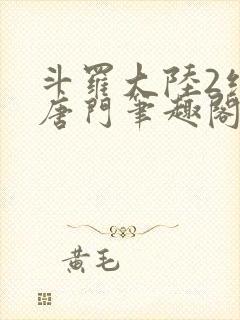 斗羅大陸2
唐門筆趣閣
黃毛